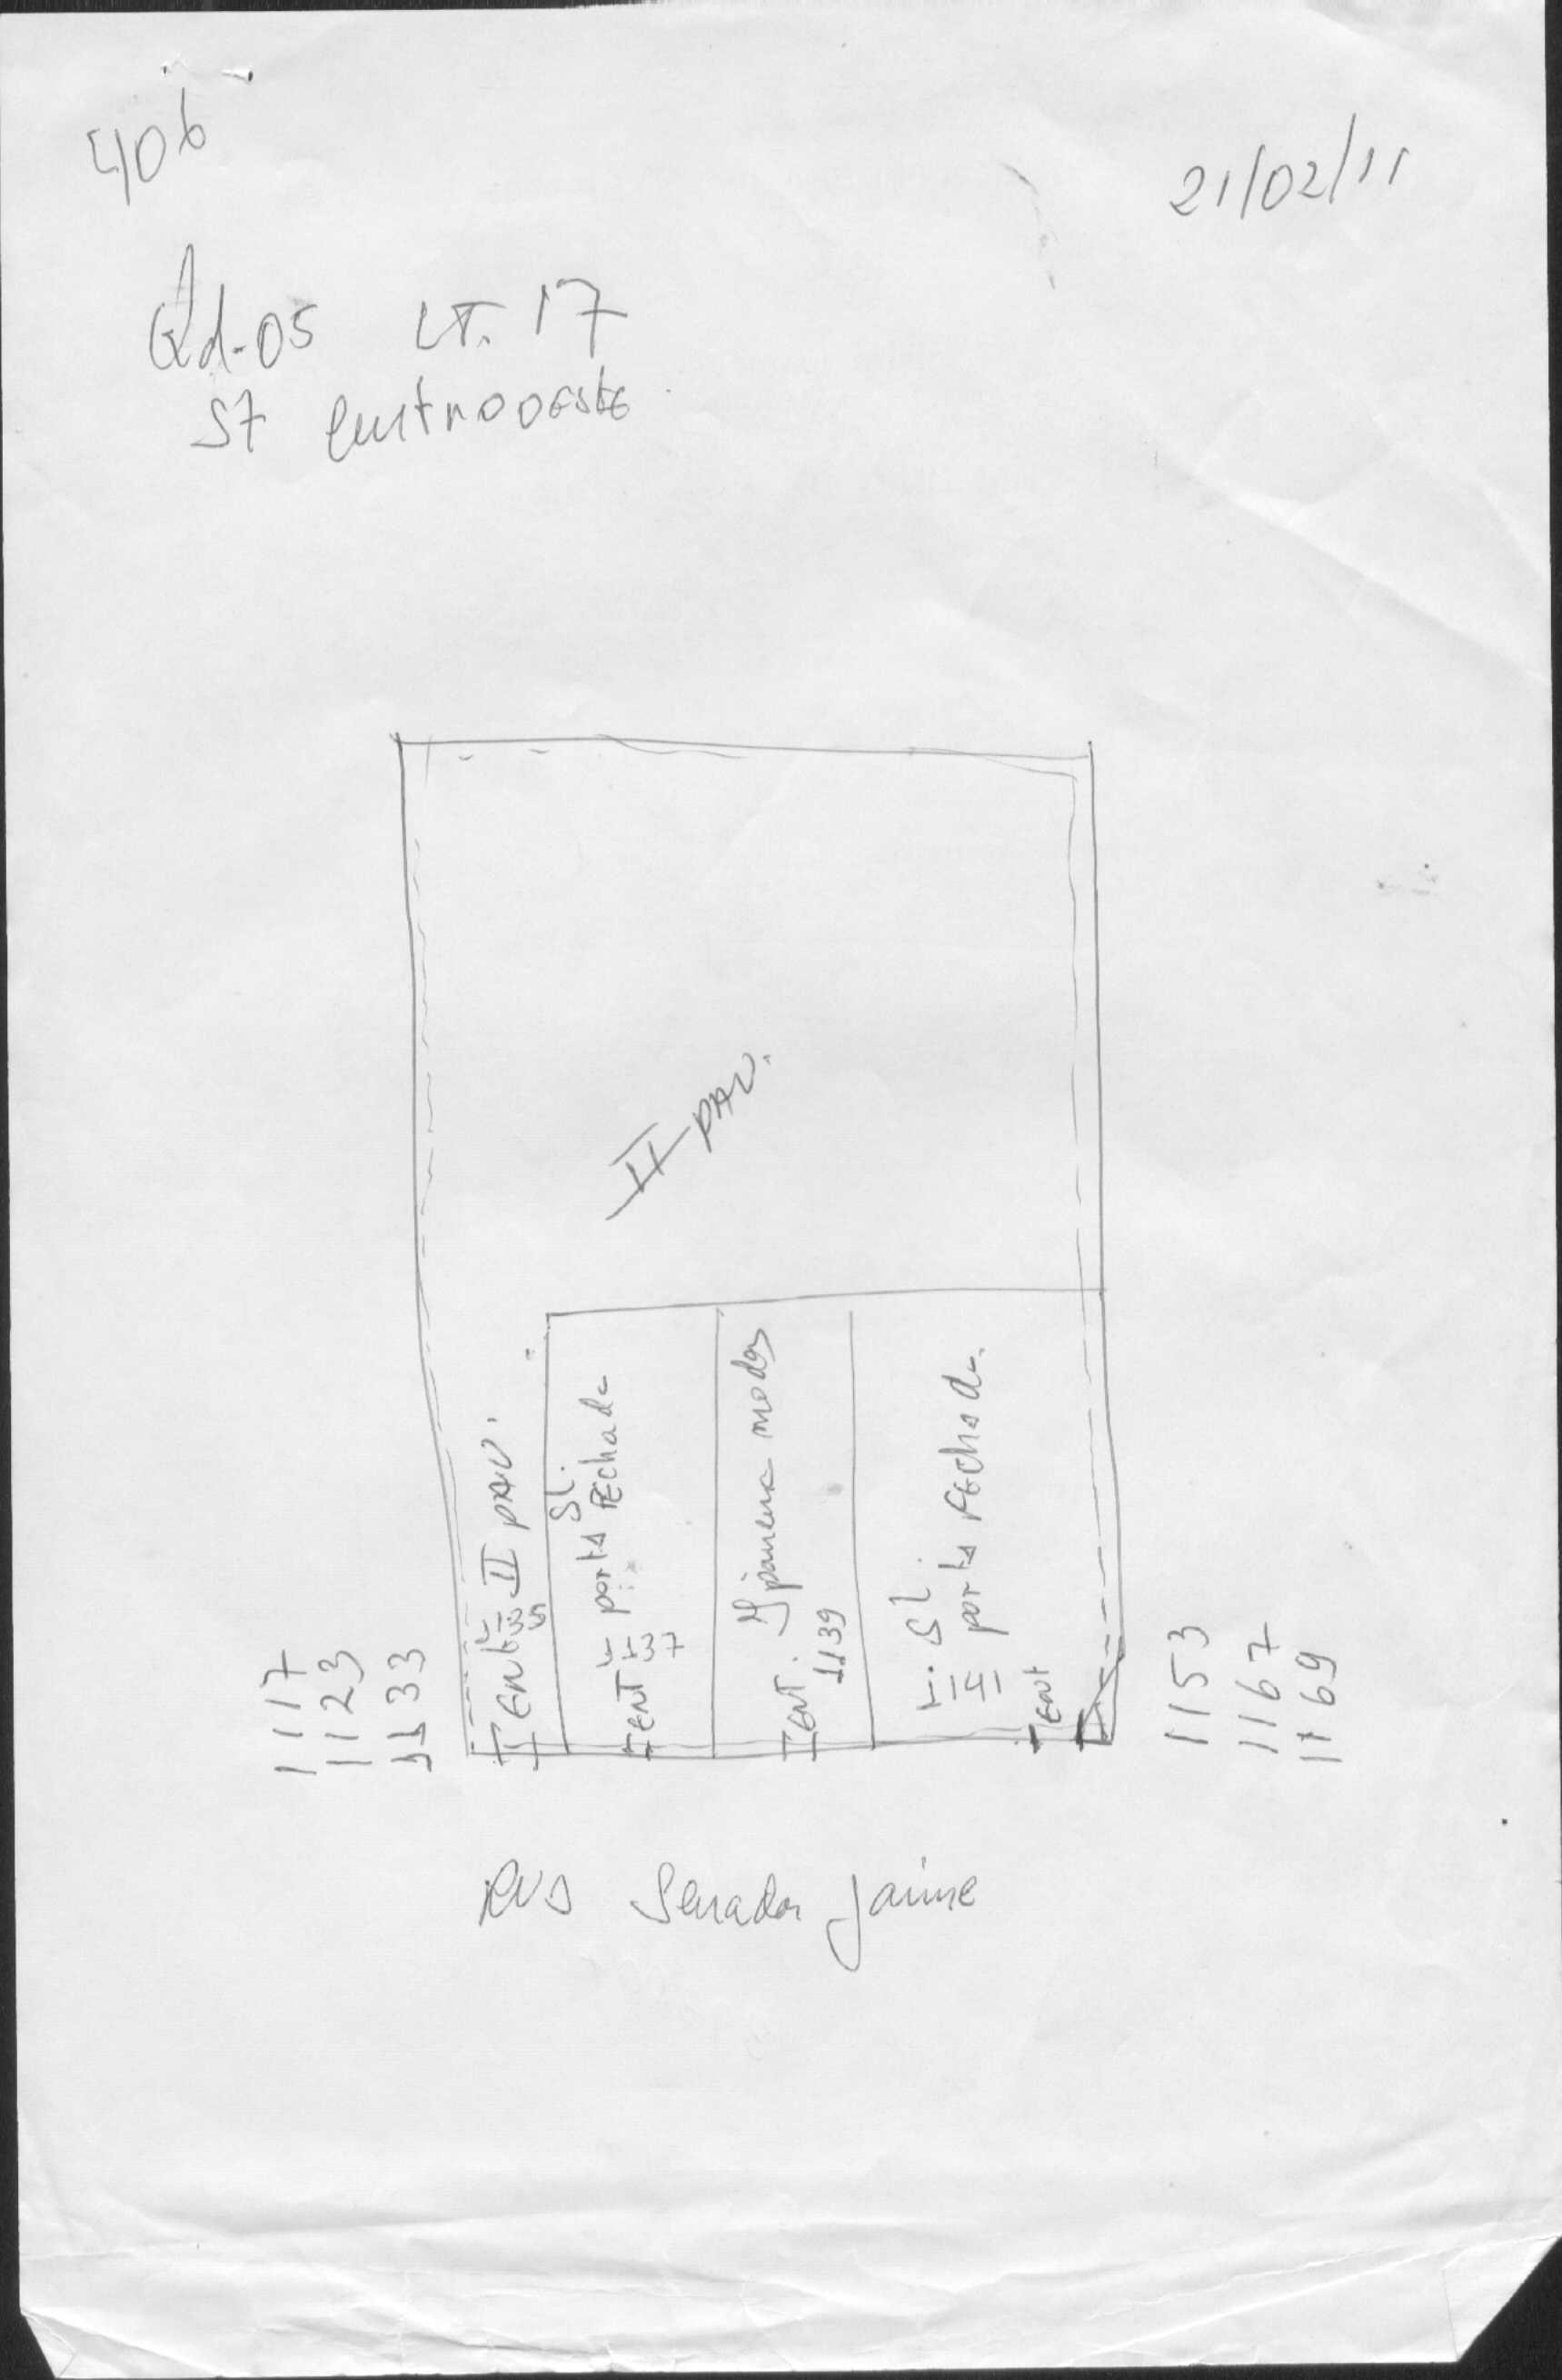 406
21/02/11
Qd-05 LT. 17
ST Centrooeste
II PAV.
ENT 1135 II PAV.
SL.
ENT 1137 porta Fechada
Ipanema modas
ENT. 1139
SL.
porta Fechada
ENT
1117
1123
1133
1153
1167
1169
RUA Senador Jaime